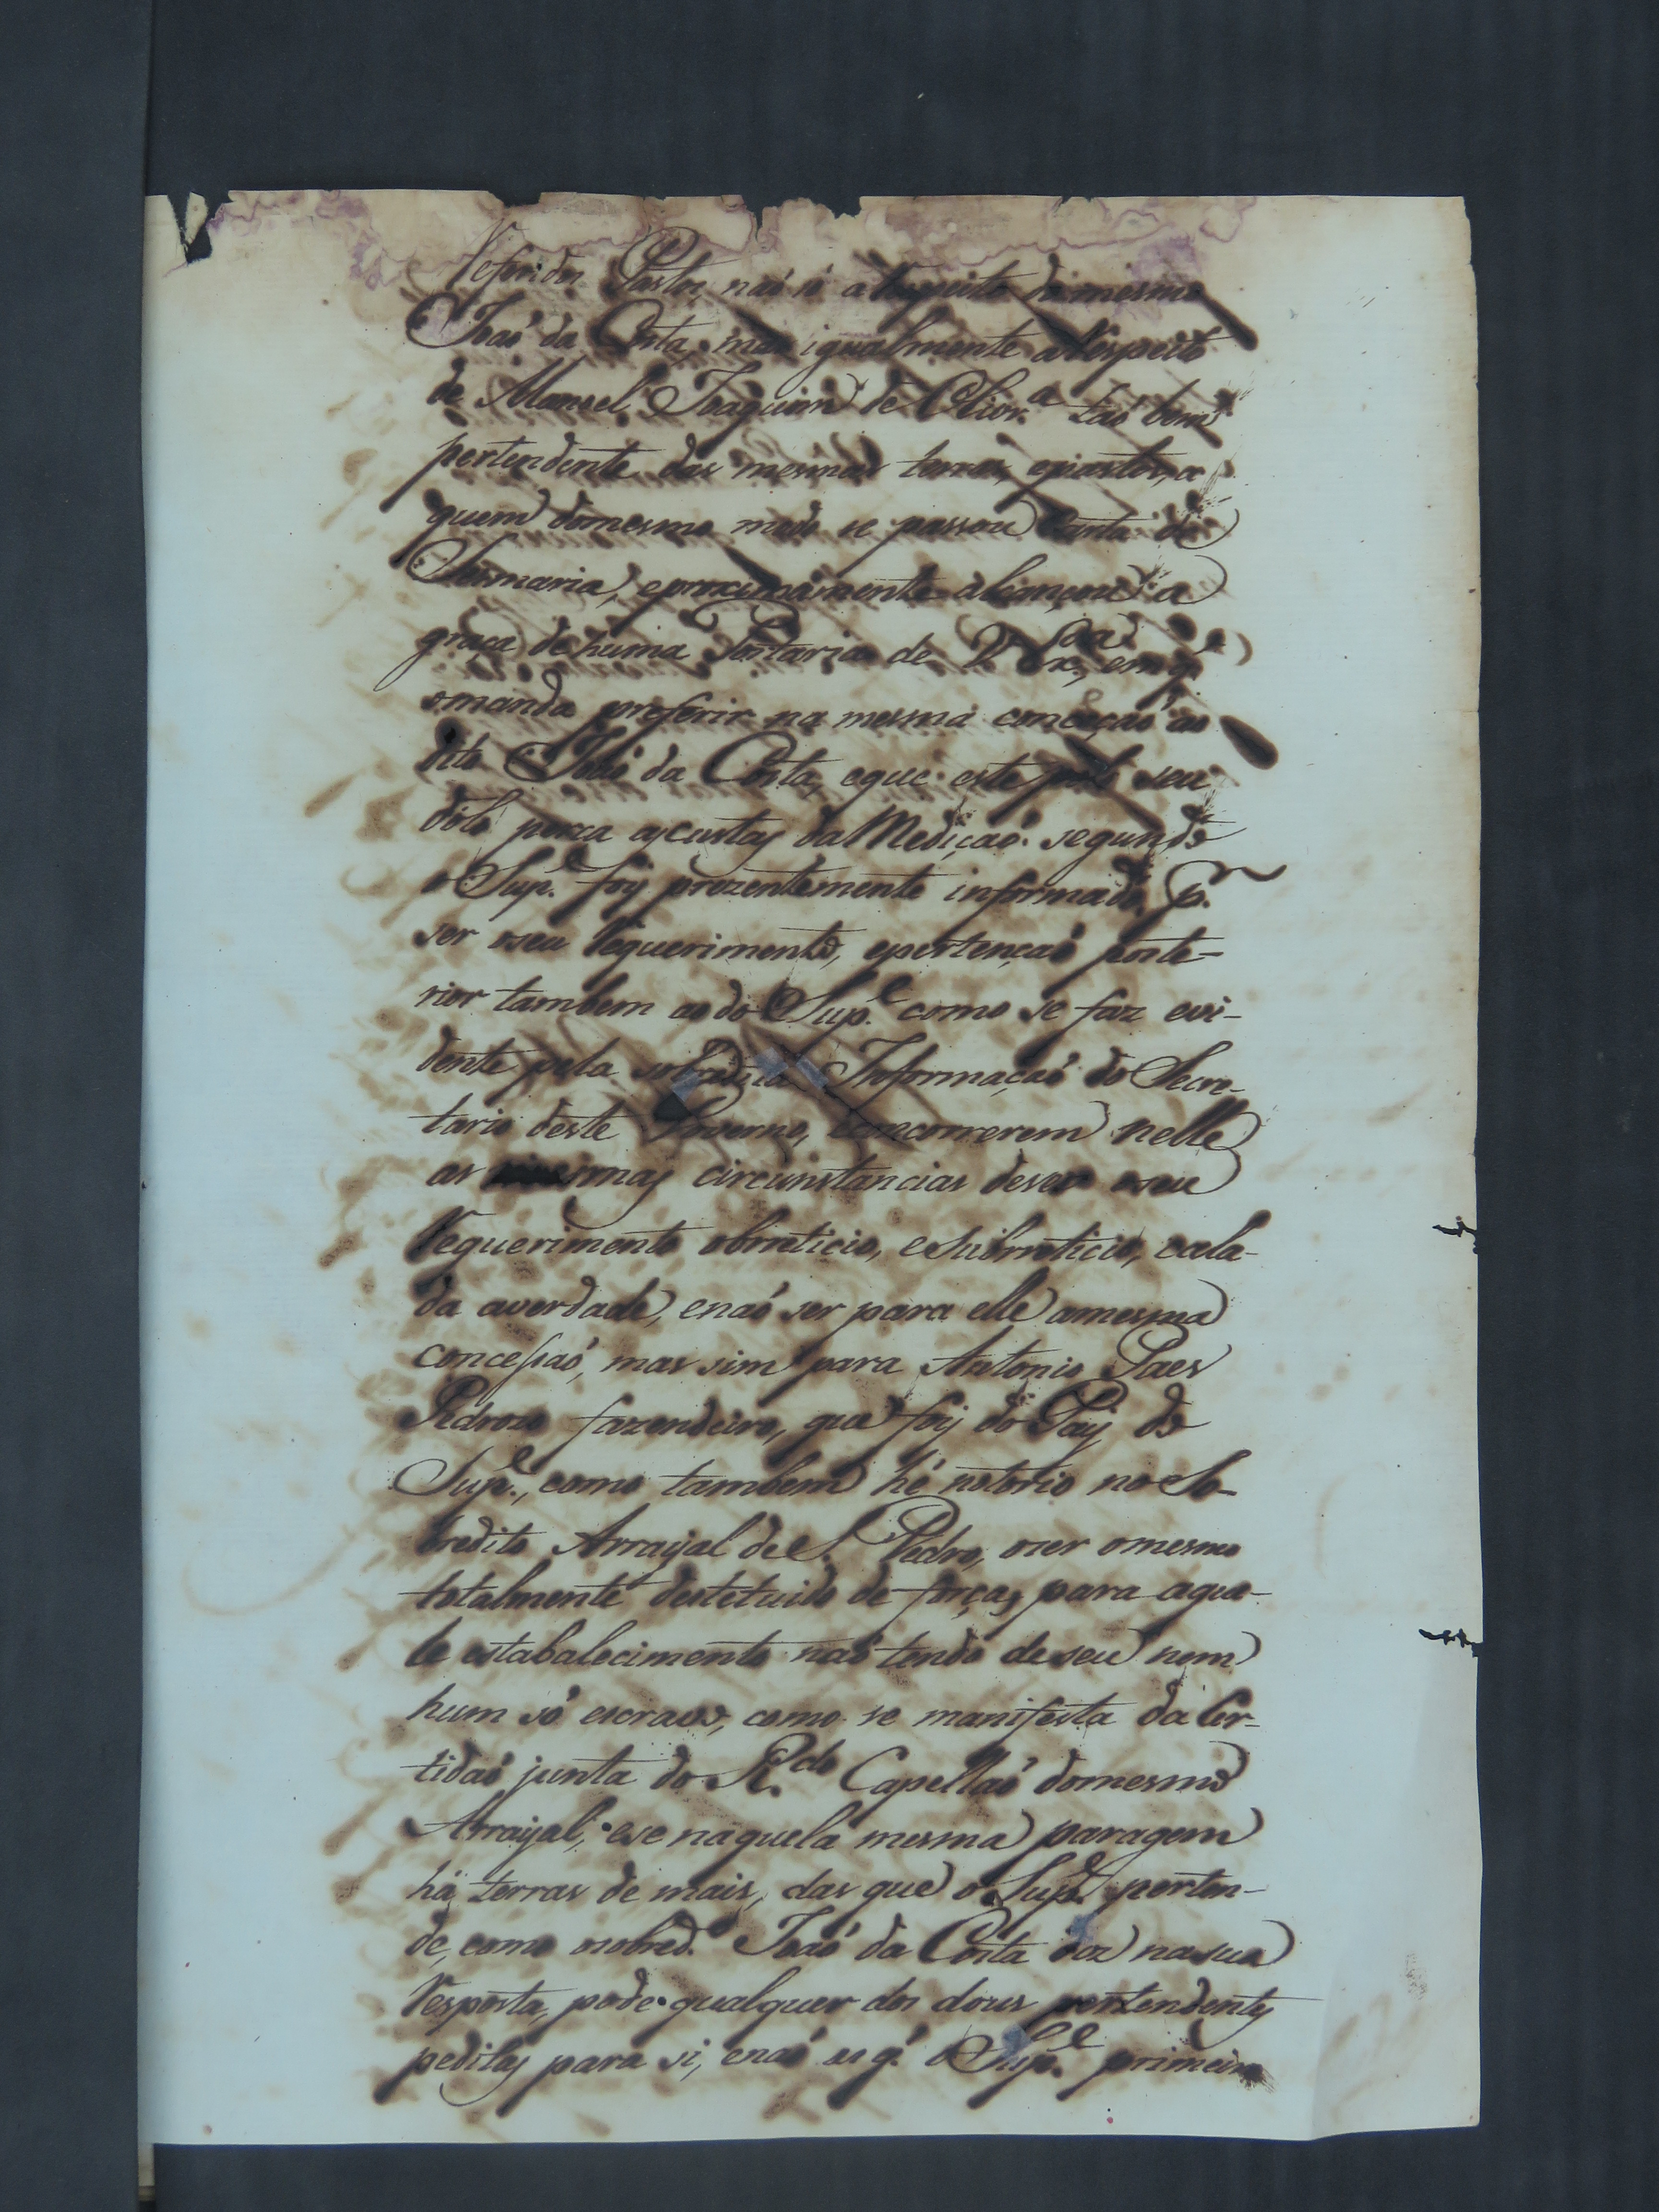 Referidos Pastos, naõ só a Respeito do mesmo
Joaõ da Costa, mas igualmente a Respeito
de Manoel Joaquim de Olivr.ª taõ bem
pertendente das mesmas terras, epastos, a
quem domesmo modo se passou Carta de
Sesmaria, eproximamente alcançou a
graça de huma Portaria de V Ex.cia, em q.
omanda preferir na mesma conceçaõ ao
dito Joaõ da Costa, eque este pelo seu
dólo perca as custas da Mediçaõ segundo
o Sup.e foy prezentemente informado, p.r
ser oseu Requerimento, epertençaõ poste-
rior tambem ao do Sup.e como se faz evi-
dente pela sobredita Informaçaõ do Secre-
tario deste Governo, concorrerem nelle
as mesmas circunstancias deser oseu
Requerimento obrreticio, esubrreticio, cala-
da averdade, enaõ ser para elle amesma
concessaõ, mas sim para Antonio Paes
Pedrozo fazendeiro, que foy do Pay do
Sup.e, como tambem hé notorio no So-
bredito Arrayal de S. Pedro, oser omesmo
totalmente destetuido de forças para aque-
le estabalecimento naõ tendo deseu nem
hum só escravo, como se manifesta da Cer-
tidaõ junta do R.do Capellaõ domesmo
Arrayal; ese naquela mesma paragem
há terras de mais, das que o Sup.e perten-
de, como osobred.o Joaõ da Costa diz nasua
Resposta, pode qualquer dos dous pertendentes
pedilas para si, enaõ as q. o Sup.e primeiro